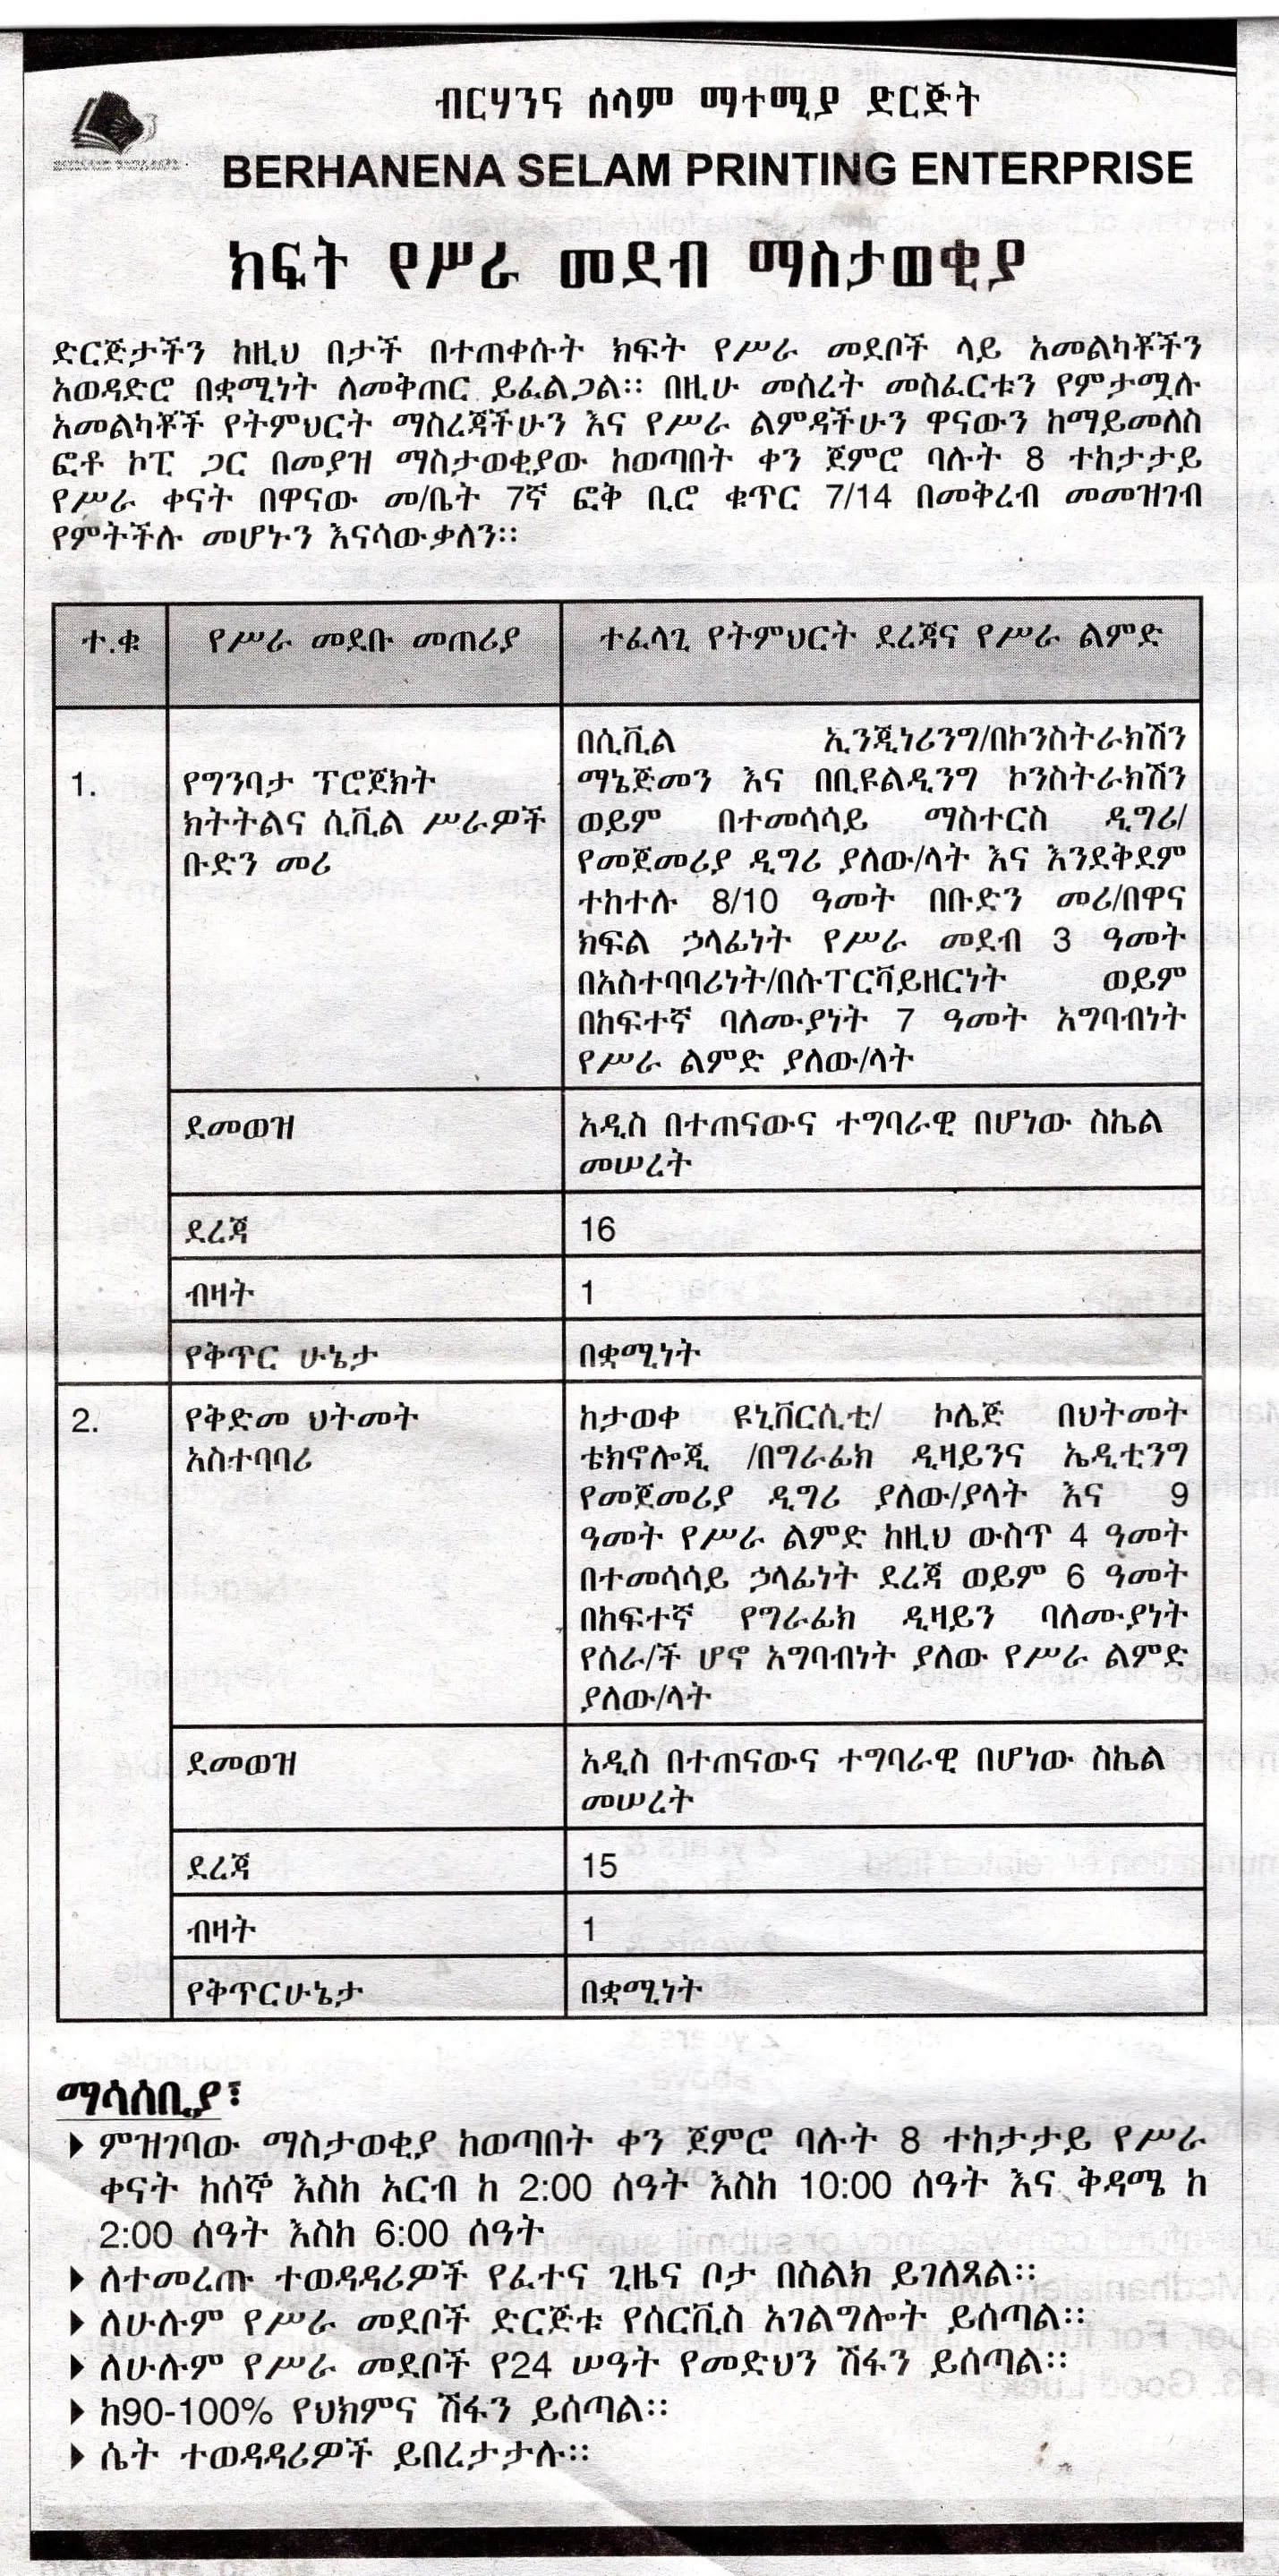 ብርሃንና ሰላም ማተሚያ ድርጅት
BERHANENA SELAM PRINTING ENTERPRISE
ክፍት የሥራ መደብ ማስታወቂያ
ድርጅታችን ከዚህ በታች በተጠቀሱት ክፍት የሥራ መደቦች ላይ አመልካቾችን
አወዳድሮ በቋሚነት ለመቅጠር ይፈልጋል፡፡ በዚሁ መሰረት መስፈርቱን የምታሟሉ
አመልካቾች የትምህርት ማስረጃችሁን እና የሥራ ልምዳችሁን ዋናውን ከማይመለስ
ፎቶ ኮፒ ጋር በመያዝ ማስታወቂያው ከወጣበት ቀን ጀምሮ ባሉት 8 ተከታታይ
የሥራ ቀናት በዋናው መ/ቤት 7ኛ ፎቅ ቢሮ ቁጥር 7/14 በመቅረብ መመዝገብ
የምትችሉ መሆኑን እናሳውቃለን፡፡
ተ.ቁ የሥራ መደቡ መጠሪያ ተፈላጊ የትምህርት ደረጃና የሥራ ልምድ
1.
የግንባታ ፕሮጀክት
ክትትልና ሲቪል ሥራዎች
ቡድን መሪ
በሲቪል ኢንጂነሪንግ/በኮንስትራክሽን
ማኔጅመን እና በቢዩልዲንግ ኮንስትራክሽን
ወይም በተመሳሳይ ማስተርስ ዲግሪ/
የመጀመሪያ ዲግሪ ያለው/ላት እና እንደቅደም
ተከተሉ 8/10 ዓመት በቡድን መሪ/በዋና
ክፍል ኃላፊነት የሥራ መደብ 3 ዓመት
በአስተባባሪነት/በሱፐርቫይዘርነት ወይም
በከፍተኛ ባለሙያነት 7 ዓመት አግባብነት
የሥራ ልምድ ያለው/ላት
ደመወዝ
አዲስ በተጠናውና ተግባራዊ በሆነው ስኬል
መሠረት
ደረጃ 16
ብዛት 1
የቅጥር ሁኔታ በቋሚነት
2.
የቅድመ ህትመት
አስተባባሪ
ከታወቀ ዩኒቨርሲቲ/ ኮሌጅ በህትመት
ቴክኖሎጂ /በግራፊክ ዲዛይንና ኤዲቲንግ
የመጀመሪያ ዲግሪ ያለው/ያላት እና 9
ዓመት የሥራ ልምድ ከዚህ ውስጥ 4 ዓመት
በተመሳሳይ ኃላፊነት ደረጃ ወይም 6 ዓመት
በከፍተኛ የግራፊክ ዲዛይን ባለሙያነት
የሰራ/ች ሆኖ አግባብነት ያለው የሥራ ልምድ
ያለው/ላት
ደመወዝ
አዲስ በተጠናውና ተግባራዊ በሆነው ስኬል
መሠረት
ደረጃ 15
ብዛት 1
የቅጥርሁኔታ በቋሚነት
ማሳሰቢያ፣
ምዝገባው ማስታወቂያ ከወጣበት ቀን ጀምሮ ባሉት 8 ተከታታይ የሥራ
ቀናት ከሰኞ እስከ አርብ ከ 2:00 ሰዓት እስከ 10:00 ሰዓት እና ቅዳሜ ከ
2:00 ሰዓት እስከ 6:00 ሰዓት
ለተመረጡ ተወዳዳሪዎች የፈተና ጊዜና ቦታ በስልክ ይገለጻል፡፡
ለሁሉም የሥራ መደቦች ድርጅቱ የሰርቪስ አገልግሎት ይሰጣል፡፡
ለሁሉም የሥራ መደቦች የ24 ሠዓት የመድህን ሽፋን ይሰጣል፡፡
ከ90-100% የህክምና ሽፋን ይሰጣል፡፡
ሴት ተወዳዳሪዎች ይበረታታሉ፡፡